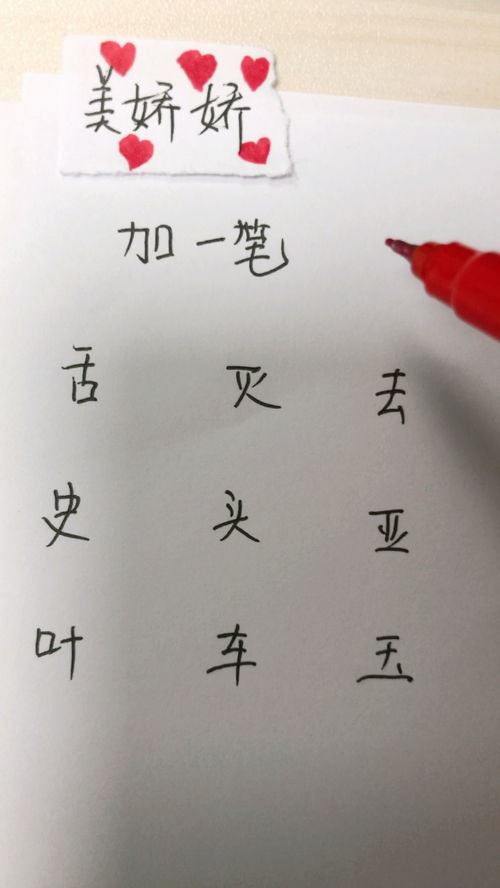 美娇娇
加一笔
舌 灭 去
史 头 亚
叶 车 玉